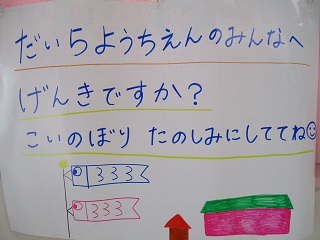 だい5ようちえんのみんなへ
げんきですか?
こいのぼり たのしみにしててね